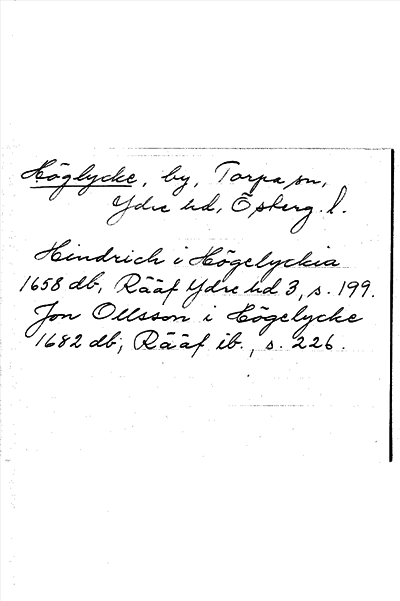 Höglycke, by, Torpa sn,
Ydre hd, Österg. l.
Hindrich i Högelyckia
1658 db, Rääf Ydre hd 3, s. 199.
Jon Ollsson i Högelycke
1682 db, Rääf ib., s. 226.